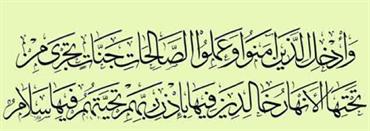 وَأُدْخِلَ الَّذِينَ آمَنُوا وَعَمِلُوا الصَّالِحَاتِ جَنَّاتٍ تَجْرِي مِنْ
تَحْتِهَا الْأَنْهَارُ خَالِدِينَ فِيهَا بِإِذْنِ رَبِّهِمْ تَحِيَّتُهُمْ فِيهَا سَلَامٌ